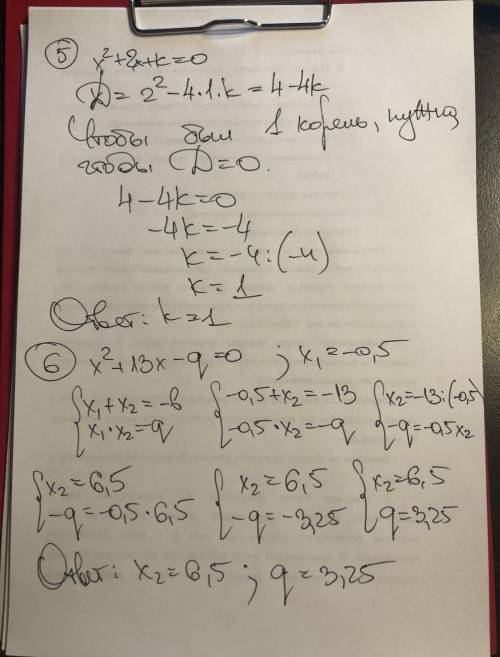 5 x²+2x+k=0
D=2²-4·1·k=4-4k
Чтобы был 1 корень, нужно
чтобы D=0.
4-4k=0
-4k=-4
k=-4:(-4)
k=1
Ответ: k=1
6 x²+13x-q=0 ; x₁=-0,5
{x₁+x₂=-b {-0,5+x₂=-13 {x₂=-13:(-0,5)
{x₁·x₂=q {-0,5·x₂=-q {-q=-0,5x₂
{x₂=6,5 {x₂=6,5 {x₂=6,5
{-q=-0,5·6,5 {-q=-3,25 {q=3,25
Ответ: x₂=6,5 ; q=3,25